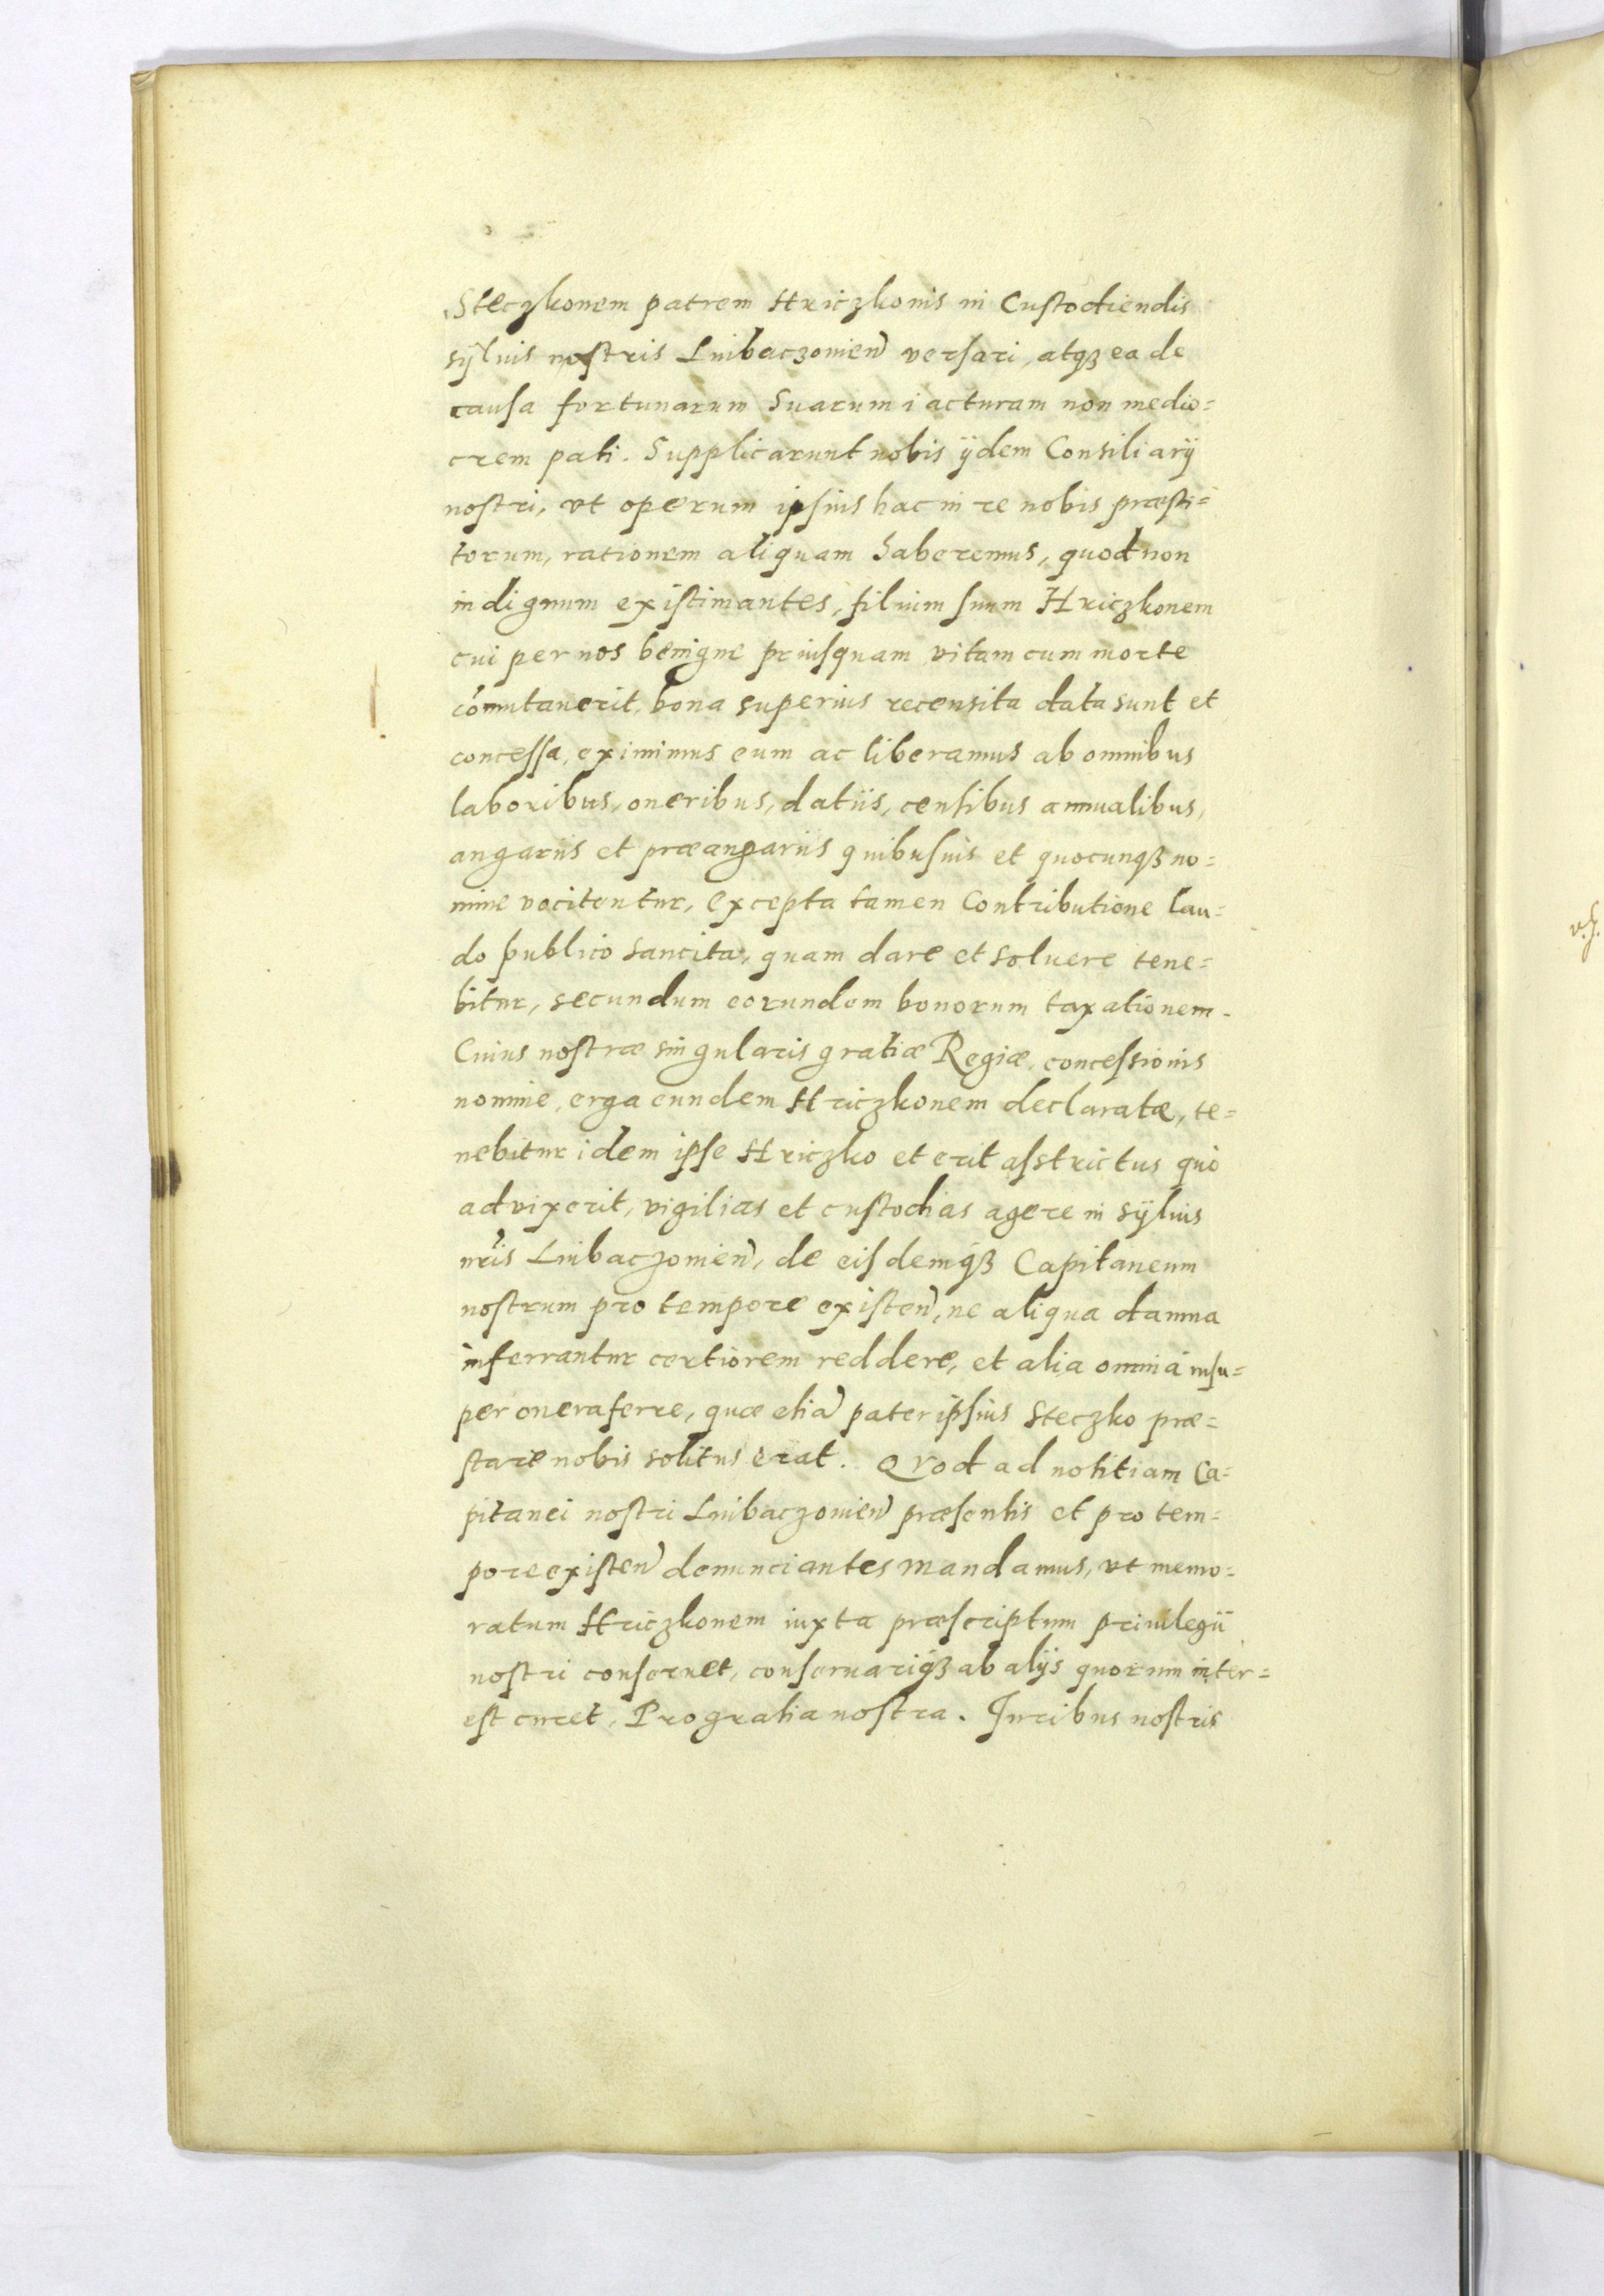 Steczkonem patrem Hriczkonis in Custodiendis
sÿluis nostris Luibaczouien̄ versari, atqꝫ ea de
causa fortunarum suarum iacturam non medio=
crem pati. Supplicarunt nobis ÿdem Consiliarÿ
nostri, vt operum ipsius hac in re nobis præsti=
torum, rationem aliquam haberemus, quod non
indignum existimantes, filium suum Hriczkonem
cui per nos benigne priusquam vitam cum morte
com̄utauerit, bona superius recensita data sunt et
concessa, eximimus eum ac liberamus ab omnibus
laboribus, oneribus, datiis, censibus annualibus,
angariis et præangariis quibusuis et quocunqꝫ no=
mine vocitentur, excepta tamen Contributione lau=
do publico sancita, quam dare et soluere tene=
bitur, secundum eorundem bonorum taxationem.
Cuius nostræ singularis gratiæ Regiæ, concessionis
nomine, erga eundem Hriczkonem declaratæ, te=
nebitur idem ipse Hriczko et erit asstrictus quo
aduixerit, vigilias et custodias agere in sÿluis
nr̄is Luibaczouien̄, de eisdemqꝫ Capitaneum
nostrum pro tempore existen̄, ne aliqua damna
inferrantur certiorem reddere, et alia omnia insu=
per onera ferre, quæ etiā pater ipsius Steczko præ=
stare nobis solitus erat. Qvod ad notitiam Ca=
pitanei nostri Luibaczouien̄ præsentis et pro tem=
pore existen̄ denunciantes mandamus, vt memo=
ratum Hriczkonem iuxta præscriptum priuilegii
nostri conseruet, conseruariqꝫ ab alÿs quorum inter=
est curet, Pro gratia nostra. Iuribus nostris